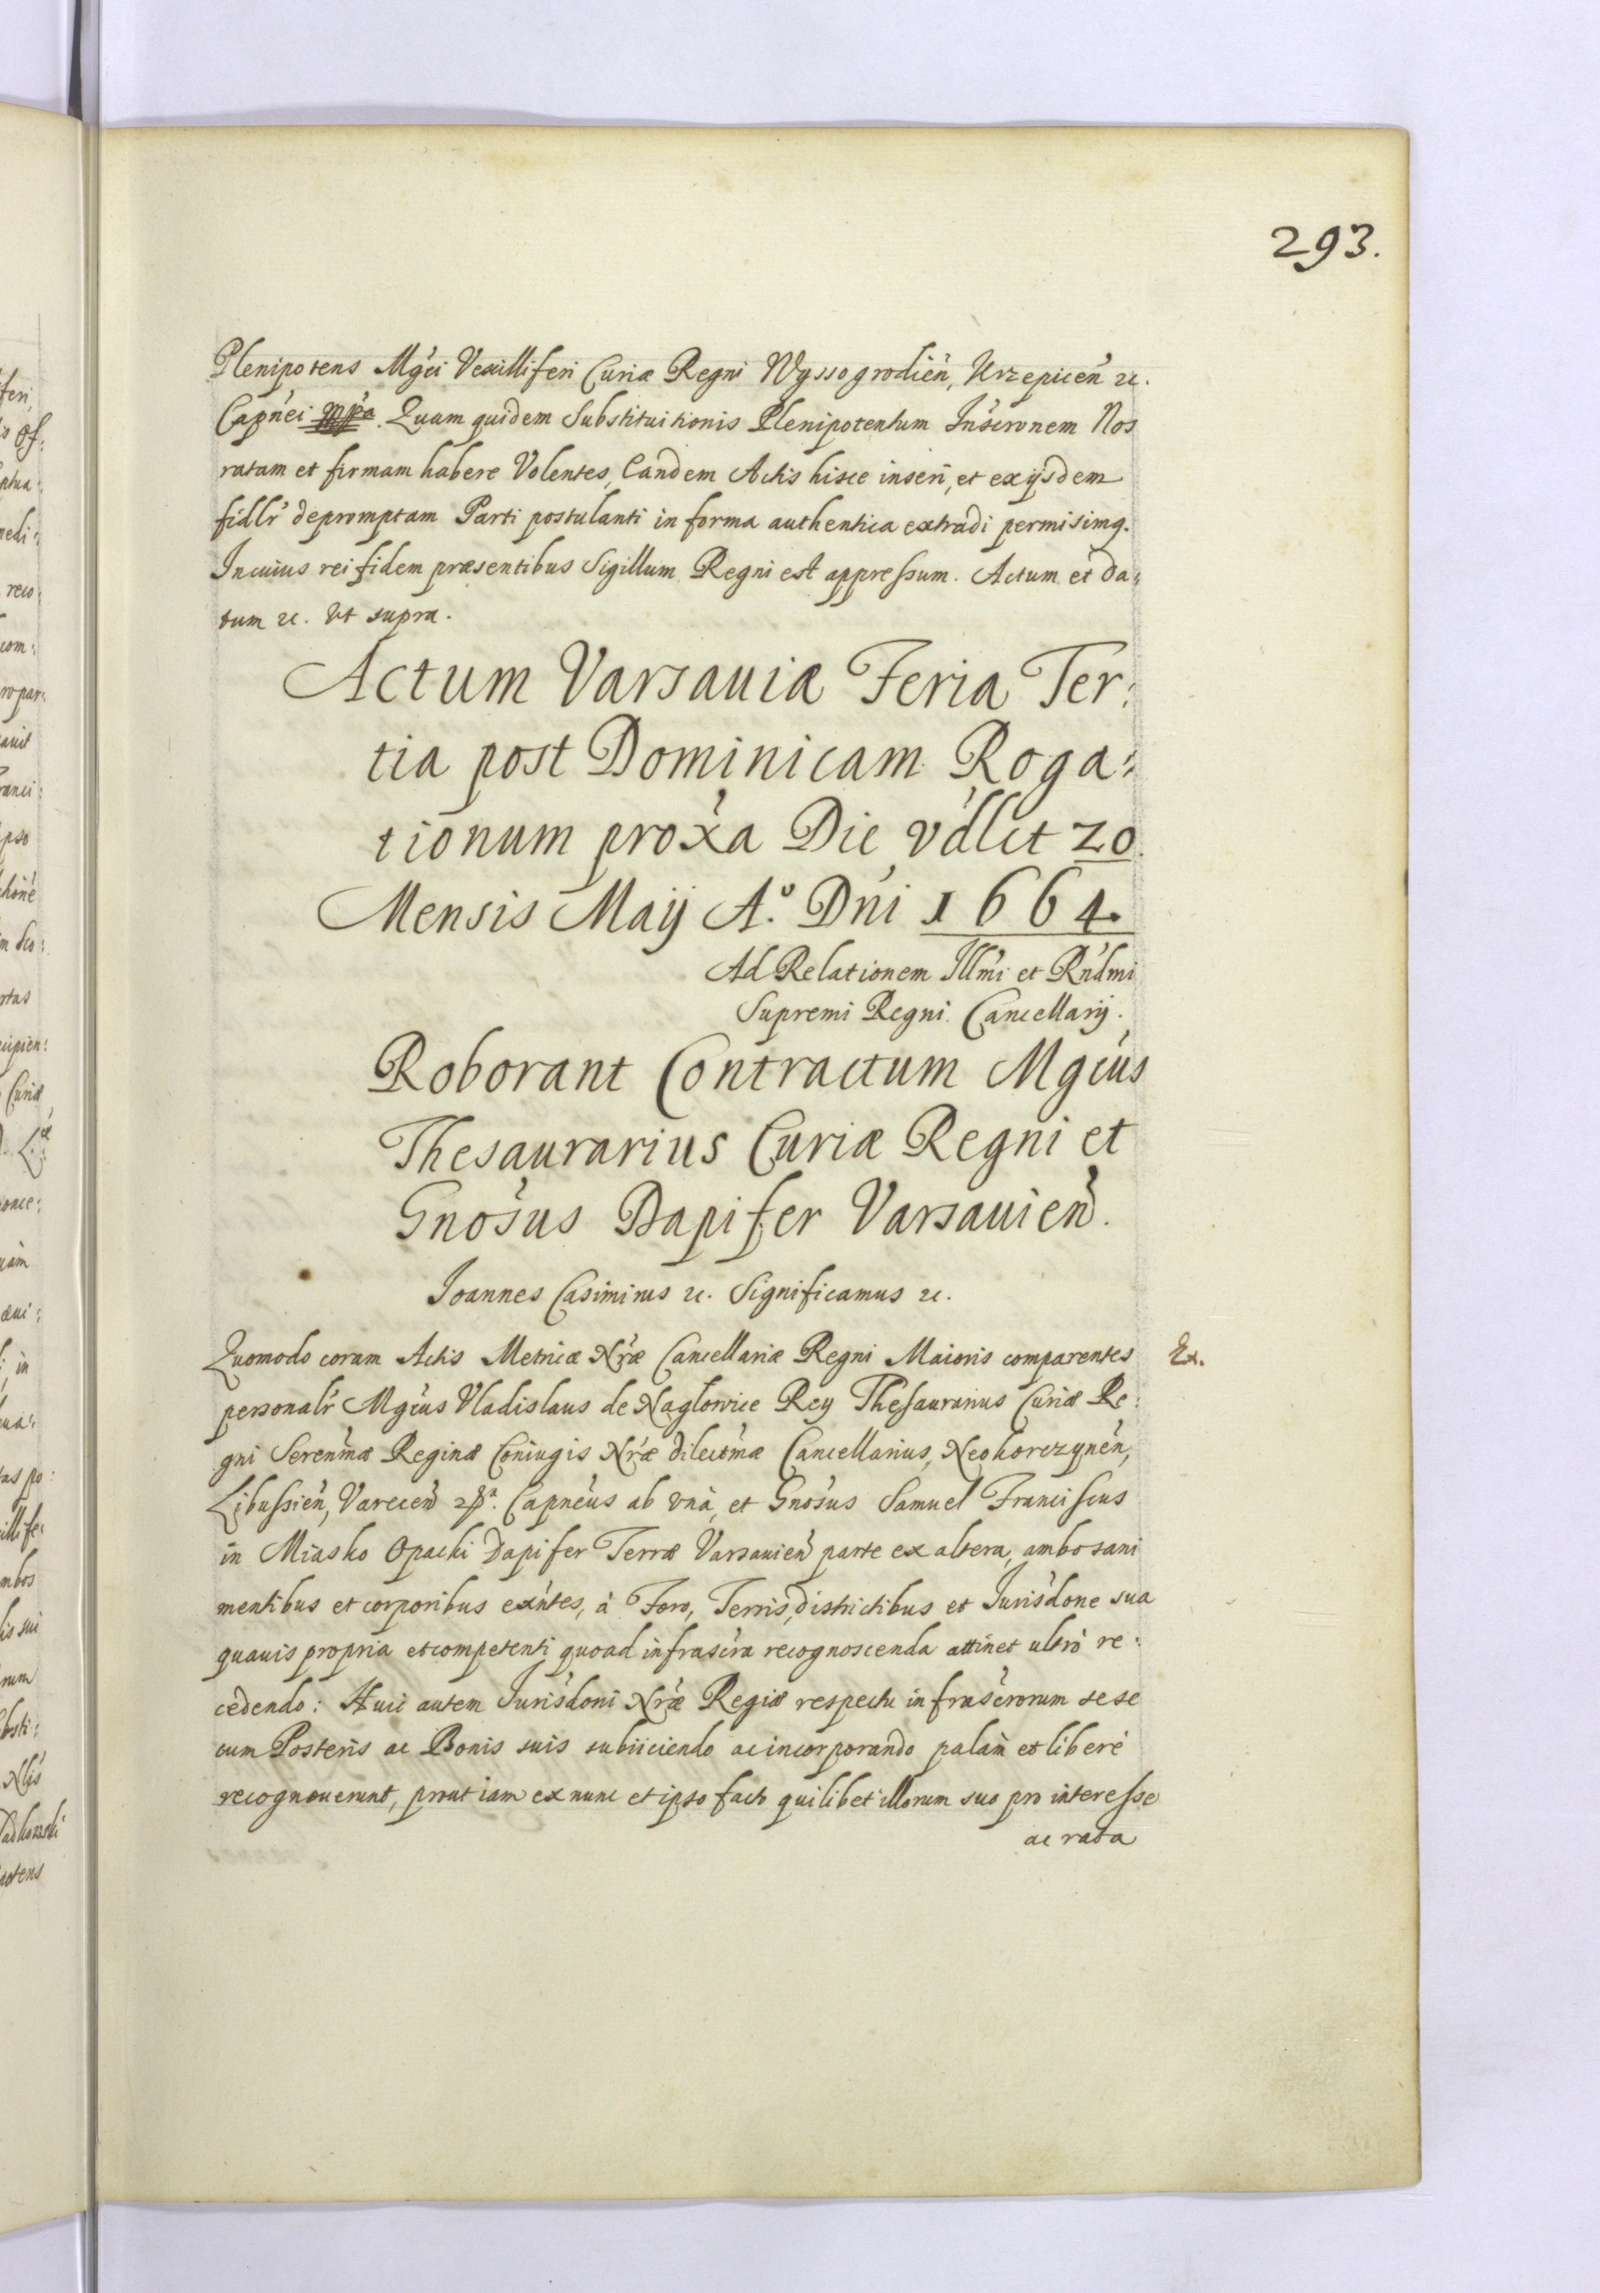 293.
Plenipotens Mgći Vexilliferi Curiæ Regni Wyssogrodień, Krzepiceń &c.
Capńei mpa. Quam quidem Substituitionis Plenipotentum Inscronem Nos
ratam et firmam habere Volentes, Eandem Actis hisce inseri, et exijsdem
fidlr depromptam Parti postulanti in forma authentica extradi permisimq.
Incuius rei fidem præsentibus Sigillum Regni est appressum. Actum et da:
tum &c. Vt supra.
Actum Varsauiæ Feria Ter:
tia post Dominicam Roga:
tionum proxa Die vdlct 20.
Mensis Maij A.º Dńi 1664.
Ad Relationem Illmi et Rńdmi
Supremi Regni Cancellarij.
Roborant Contractum Mgćus
Thesaurarius Curiæ Regni et
Gnosus Dapifer Varsauień.
Ioannes Casimirus &c. Significamus &c.
Quomodo coram Actis Metricæ Nræ Cancellariæ Regni Maioris comparentes
Ex.
personalr Mgćus Vladislaus de Naglowice Rey Thesaurarius Curiæ Re:
gni Serenmæ Reginæ Coniugis Nræ dilectmæ Cancellarius, Neokorczyneń,
Libussień, Vareceń Capńeus ab vnà, et Gnosus Samuel Franciscus
in Miasko Opacki Dapifer Terræ Varsauień parte ex altera, ambo sani
mentibus et corporibus exńtes, à Foro, Terris, districtibus et Jurisdone sua
quauis propria et competenti quoad infrascra recognoscenda attinet ultrò re:
cedendo: Huic autem Jurisdoni Nræ Regiæ respectu infrascrorum sese
cum Posteris ac Bonis suis subiiciendo ac incorporando palàm et liberè
recognouerunt, prout iam ex nunc et ipso facto quilibet illorum suo pro interesse
ac rata